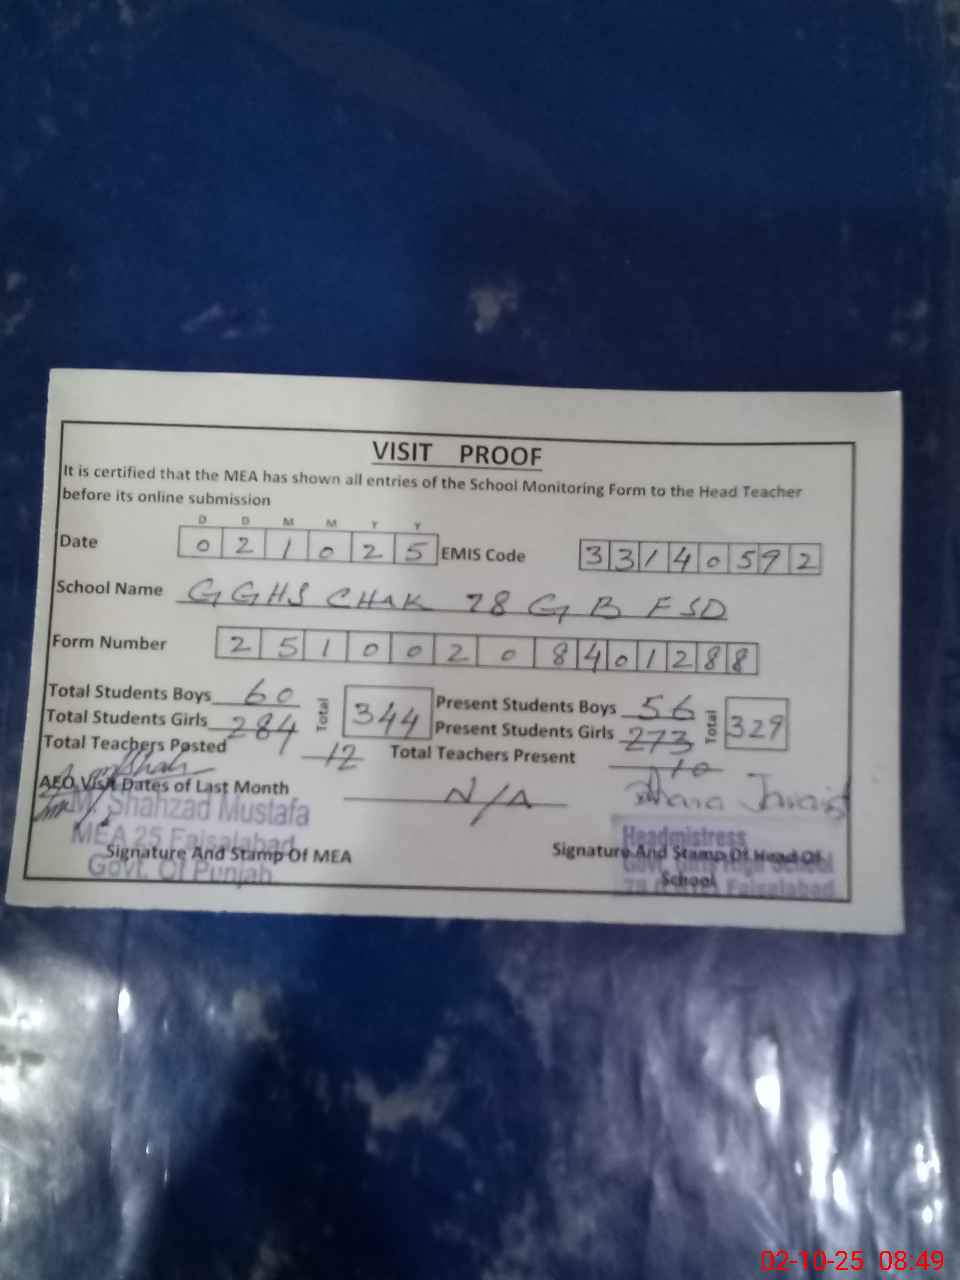 VISIT PROOF
It is certified that the MEA has shown all entries of the School Monitoring Form to the Head Teacher
before its online submission
D D M M Y Y
Date 0 2 1 0 2 5 EMIS Code 3 3 1 4 0 5 9 2
School Name GGHS CHAK 28 GB FSD
Form Number 2 5 1 0 0 2 0 8 4 0 1 2 8 8
Total Students Boys 60 Total 344 Present Students Boys 56 Total 329
Total Students Girls 284 Present Students Girls 273
Total Teachers Posted 12 Total Teachers Present 10
AEO Visit Dates of Last Month N/A
M. Shahzad Mustafa
MEA 25 Faisalabad
Govt. Of Punjab
Signature And Stamp Of MEA
Headmistress
Signature And Stamp Of Head Of
School
Faisalabad
02-10-25 08:49